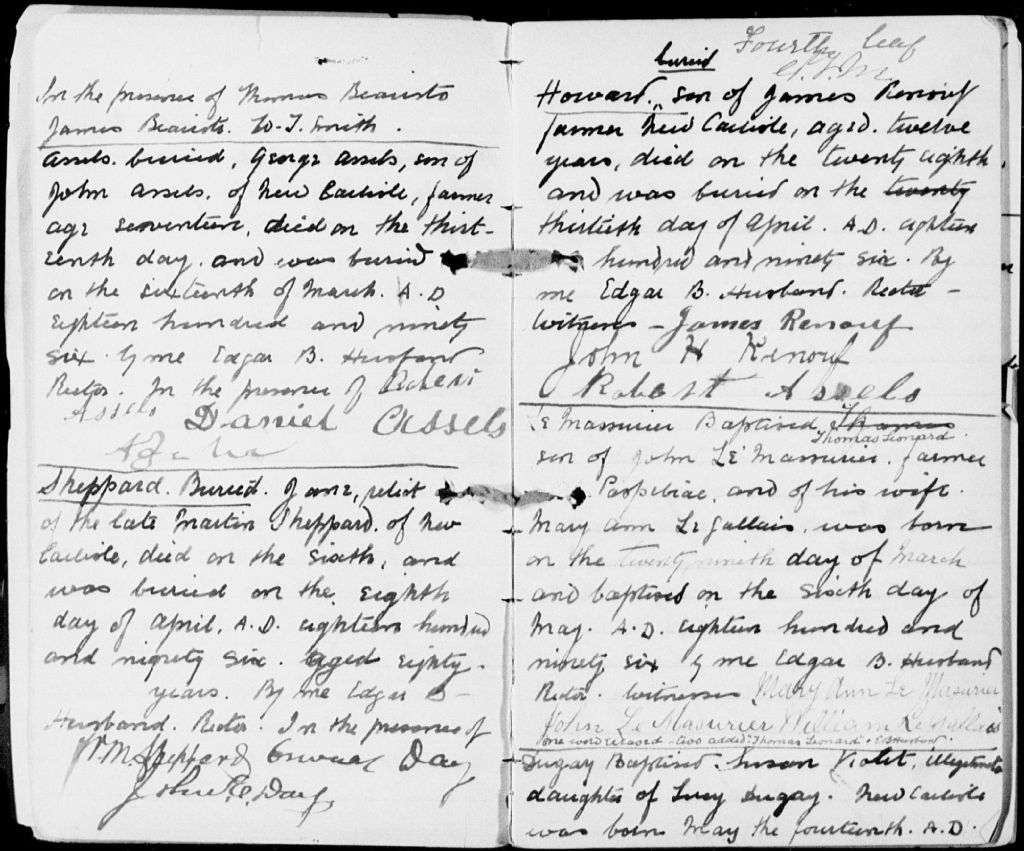 In the presence of Thomas Beairsto
James Beairsto. W. T. Smith.
Assels. buried, George Assels, son of
John Assels. of New Carlisle, farmer
age seventeen, died on the thirt-
eenth day. and was buried
on the sixteenth of March. A.D
Eighteen hundred and ninety
six. by me Edgar B. Husband
Rector. In the presence of Robert
Assels Daniel Assels
Sheppard. Buried. Jane, relict
of the late Martin Sheppard. of New
Carlisle, died on the sixth, and
was buried on the eighth
day of April, A.D. eighteen hundred
and ninety six. aged eighty-
years. By me Edgar B-
Husband. Rector. In the presence of
Wm Sheppard Day
John E. Day
Fourth leaf
buried
Howard. son of James Renouf
farmer New Carlisle, aged. twelve
years, died on the twenty eighth
and was buried on the twenty
thirtieth day of April. A.D. eighteen
hundred and ninety six. By
me Edgar B. Husband. Rector -
Witnesses - James Renouf
John H Renouf
Robert Assels
Le Masurier Baptised Thomas
Thomas Leonard.
son of John Le Masurier. farmer
Paspebiac, and of his wife.
Mary Ann Le Gallais, was born
on the twenty nineth day of March
and baptised on the sixth day of
May. A.D. eighteen hundred and
ninety six by me Edgar B. Husband
Rector. Witnesses Mary Ann Le Masurier
John Le Masurier William Le Gallais
one word erased - two added "Thomas Leonard" E.B. Husband.
Dugay Baptised. Susan Violet, illegitimate
daughter of Lucy Dugay. New Carlisle
was born May the fourteenth. A.D.